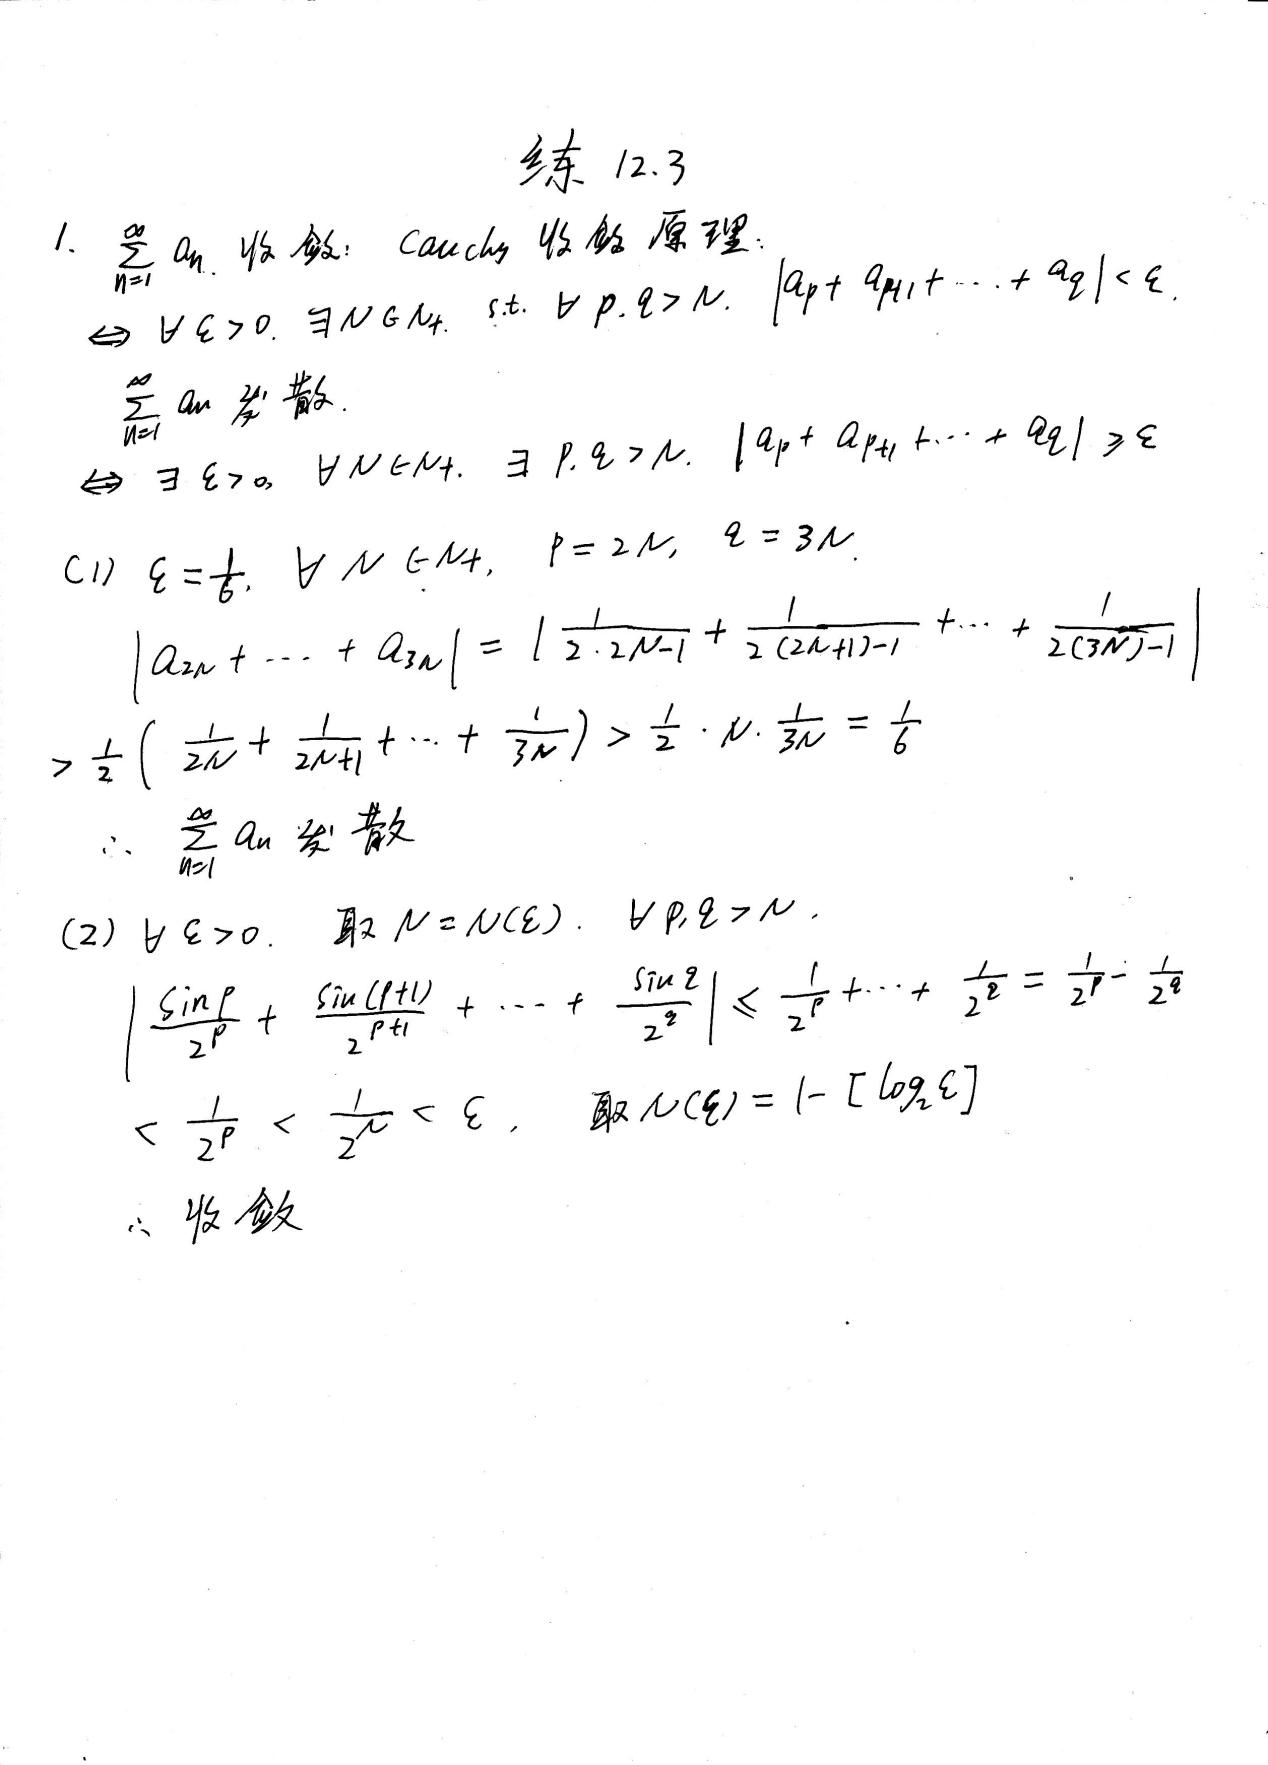 练 12.3
1. $\sum_{n=1}^{\infty} a_n$ 收敛: Cauchy 收敛原理:
$\Leftrightarrow \forall \varepsilon>0. \exists N \in N_+. s.t. \forall p.q>N. |a_p+a_{p+1}+\cdots+a_q|<\varepsilon.$
$\sum_{n=1}^{\infty} a_n$ 发散.
$\Leftrightarrow \exists \varepsilon>0, \forall N \in N_+. \exists p.q>N. |a_p+a_{p+1}+\cdots+a_q| \geqslant \varepsilon$
(1) $\varepsilon=\frac{1}{6}. \forall N \in N_+, p=2N, q=3N.$
$|a_{2N}+\cdots+a_{3N}|=|\frac{1}{2\cdot 2N-1}+\frac{1}{2(2N+1)-1}+\cdots+\frac{1}{2(3N)-1}|$
$>\frac{1}{2}(\frac{1}{2N}+\frac{1}{2N+1}+\cdots+\frac{1}{3N})>\frac{1}{2}\cdot N\cdot\frac{1}{3N}=\frac{1}{6}$
$\therefore \sum_{n=1}^{\infty} a_n$ 发散
(2) $\forall \varepsilon>0.$ 取 $N=N(\varepsilon). \forall p,q>N.$
$|\frac{\sin p}{2^p}+\frac{\sin(p+1)}{2^{p+1}}+\cdots+\frac{\sin q}{2^q}| \leqslant \frac{1}{2^p}+\cdots+\frac{1}{2^q}=\frac{1}{2^p}-\frac{1}{2^q}$
$<\frac{1}{2^p}<\frac{1}{2^N}<\varepsilon,$ 取 $N(\varepsilon)=1-[\log_2\varepsilon]$
$\therefore$ 收敛